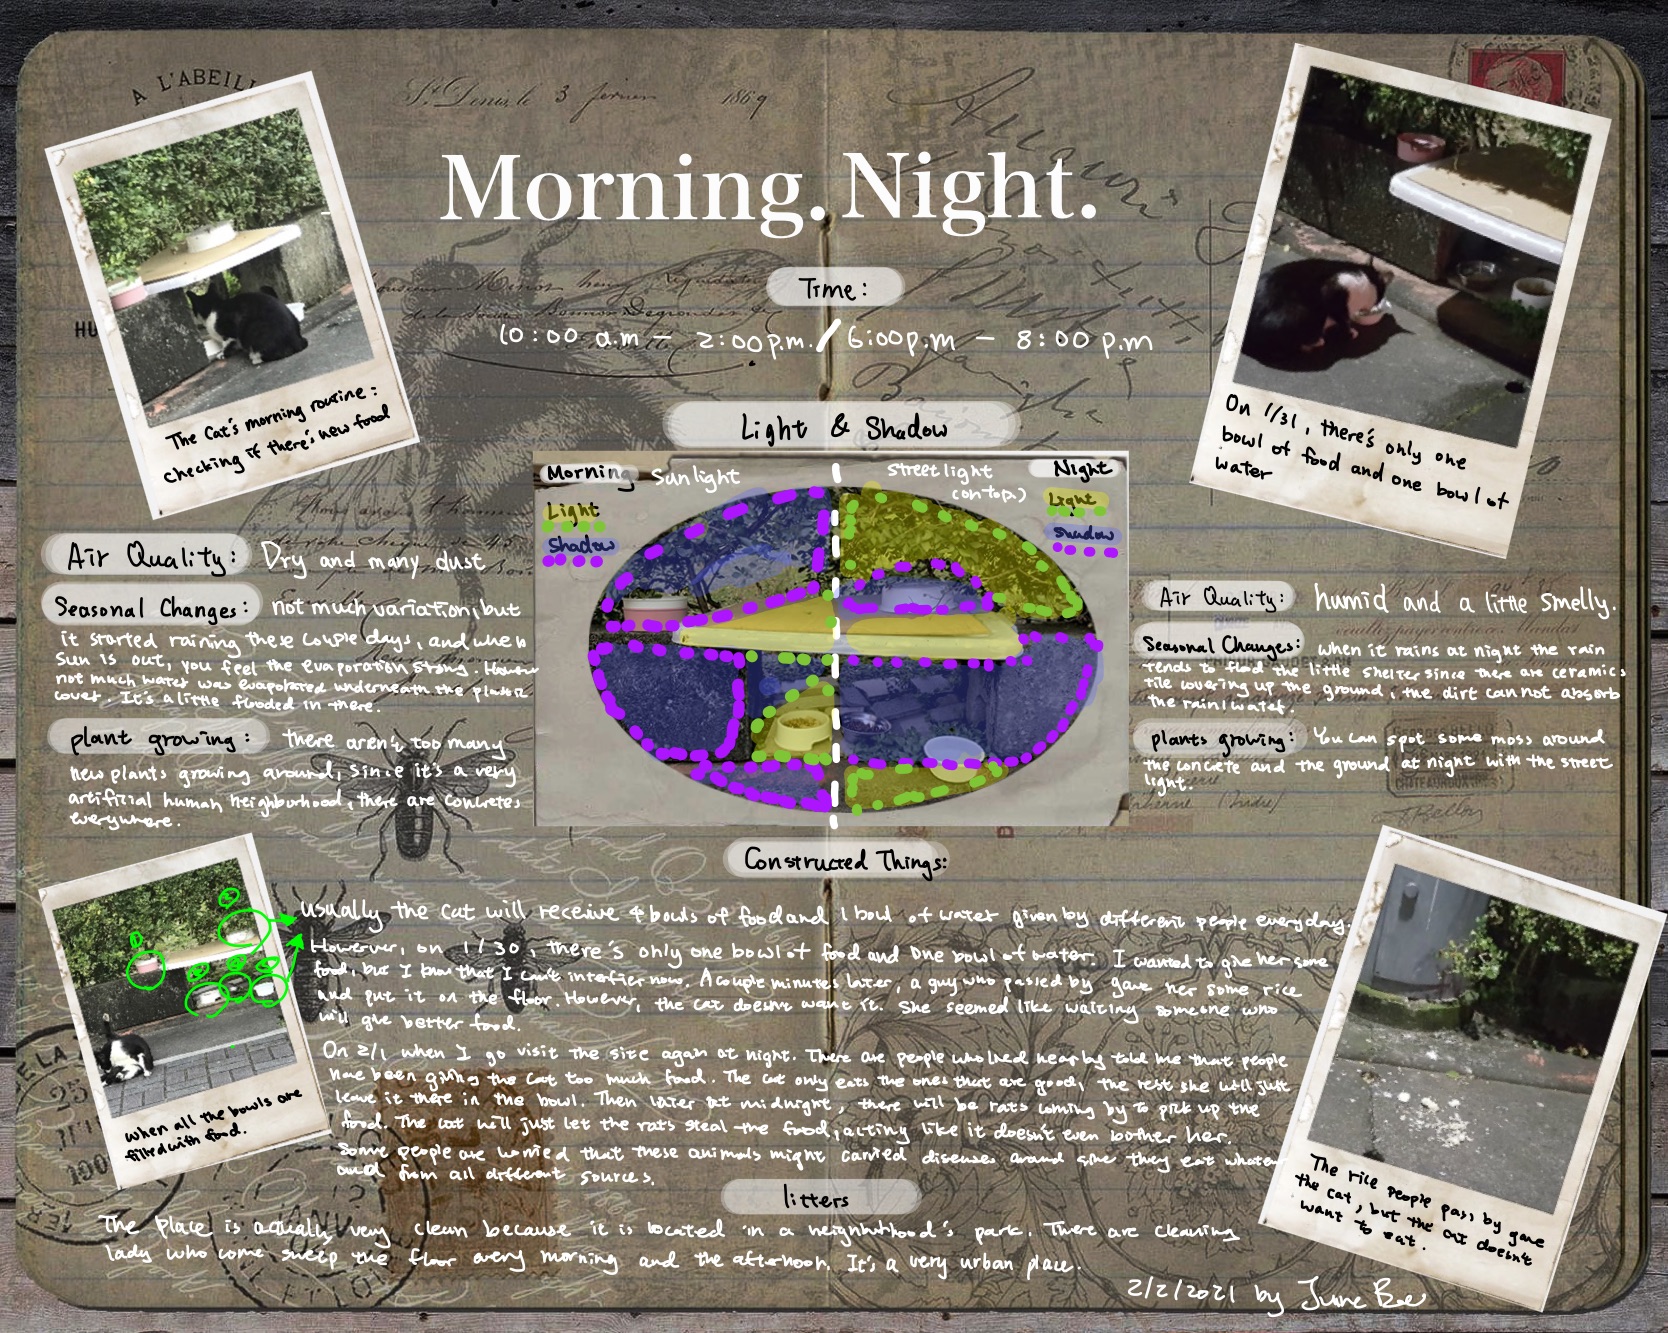 A L'ABEILL
St Denis, le 3 janvier 1869
Morning. Night.
Time:
10:00 a.m — 2:00 p.m. / 6:00 p.m — 8:00 p.m
The Cat's morning routine:
checking if there's new food
On 1/31, there's only one
bowl of food and one bowl of
water
Light & Shadow
Morning Sunlight
Light
Shadow
Street light
(on top)
Night
Light
Shadow
Air Quality: Dry and many dust
Seasonal Changes: not much variation, but
it started raining these couple days, and when
Sun is out, you feel the evaporation strong. Howev
not much water was evaporated underneath the plastic
cover. It's a little flooded in there.
plant growing: there aren't too many
new plants growing around, since it's a very
artificial human neighborhood, there are concretes
everywhere.
Air Quality: humid and a little smelly.
Seasonal Changes: when it rains at night the rain
tends to flood the little shelter since there are ceramics
tile covering up the ground, the dirt can not absorb
the rain/water.
plants growing: You can spot some moss around
the concrete and the ground at night with the street
light.
Constructed Things:
Usually the cat will receive 4 bowls of food and 1 bowl of water given by different people everyday.
However, on 1/30, there's only one bowl of food and one bowl of water. I wanted to give her some
food, but I know that I can't interfier now. A couple minutes later, a guy who passed by gave her some rice
and put it on the floor. However, the cat doesn't want it. She seemed like waiting someone who
will give better food.
On 2/1 when I go visit the site again at night. There are people who lived nearby told me that people
have been giving the cat too much food. The cat only eats the ones that are good, the rest she will just
leave it there in the bowl. Then later at midnight, there will be rats coming by to pick up the
food. The cat will just let the rats steal the food, acting like it doesn't even bother her.
Some people are worried that these animals might carried diseases around since they eat whatever
from all different sources.
when all the bowls are
filled with food.
The rice people pass by gave
the cat, but the cat doesn't
want to eat.
litters
The place is actually very clean because it is located in a neighborhood's park. There are cleaning
lady who come sweep the floor every morning and the afternoon. It's a very urban place.
2/2/2021 by June